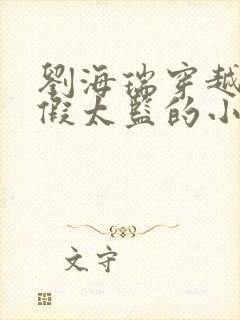 劉海瑞穿越
假太監的小
文守